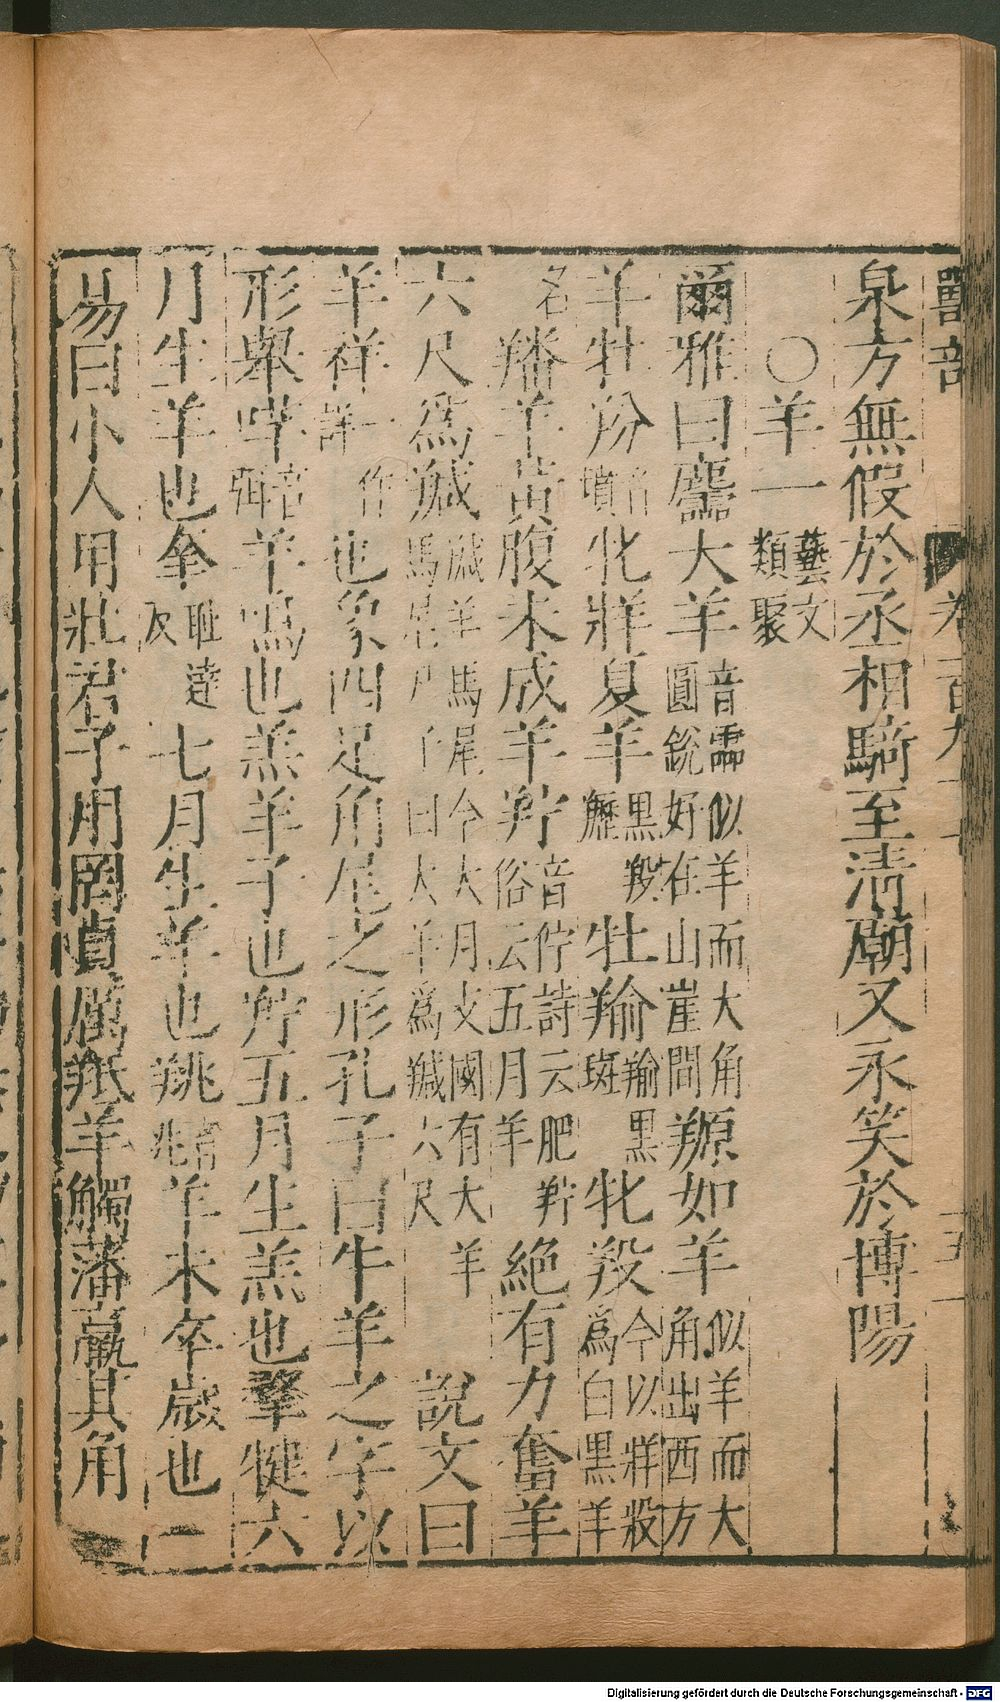 獸部
泉方無假於丞相騎至清廟又永笑於博陽
○羊一 藝文類聚
爾雅曰麢大羊 音霝似羊而大角圓銳好在山崖間 羱如羊 似羊而大角出西方
羊牡羒 音墳 牝牂夏羊 黑羖䍽 牡羭 黑羭 牝羖 今以牂羖為白黑羊名
羳羊黃腹未成羊羜 音佇詩云肥羜俗云五月羊 絕有力奮羊
六尺為羬 羬羊馬尾今大月支國有大羊 尸子曰大羊為羬六尺 說文曰
羊祥 一作詳 也象四足角尾之形孔子曰牛羊之字以
形舉咩 音弭 羊鳴也羔羊子也羜五月生羔也羍犍六
月生羊也羍 耻達反 七月生羊也羜 音兆 羊未卒歲也
易曰小人用壯君子用罔貞厲羝羊觸藩羸其角
Digitalisierung gefördert durch die Deutsche Forschungsgemeinschaft - DFG